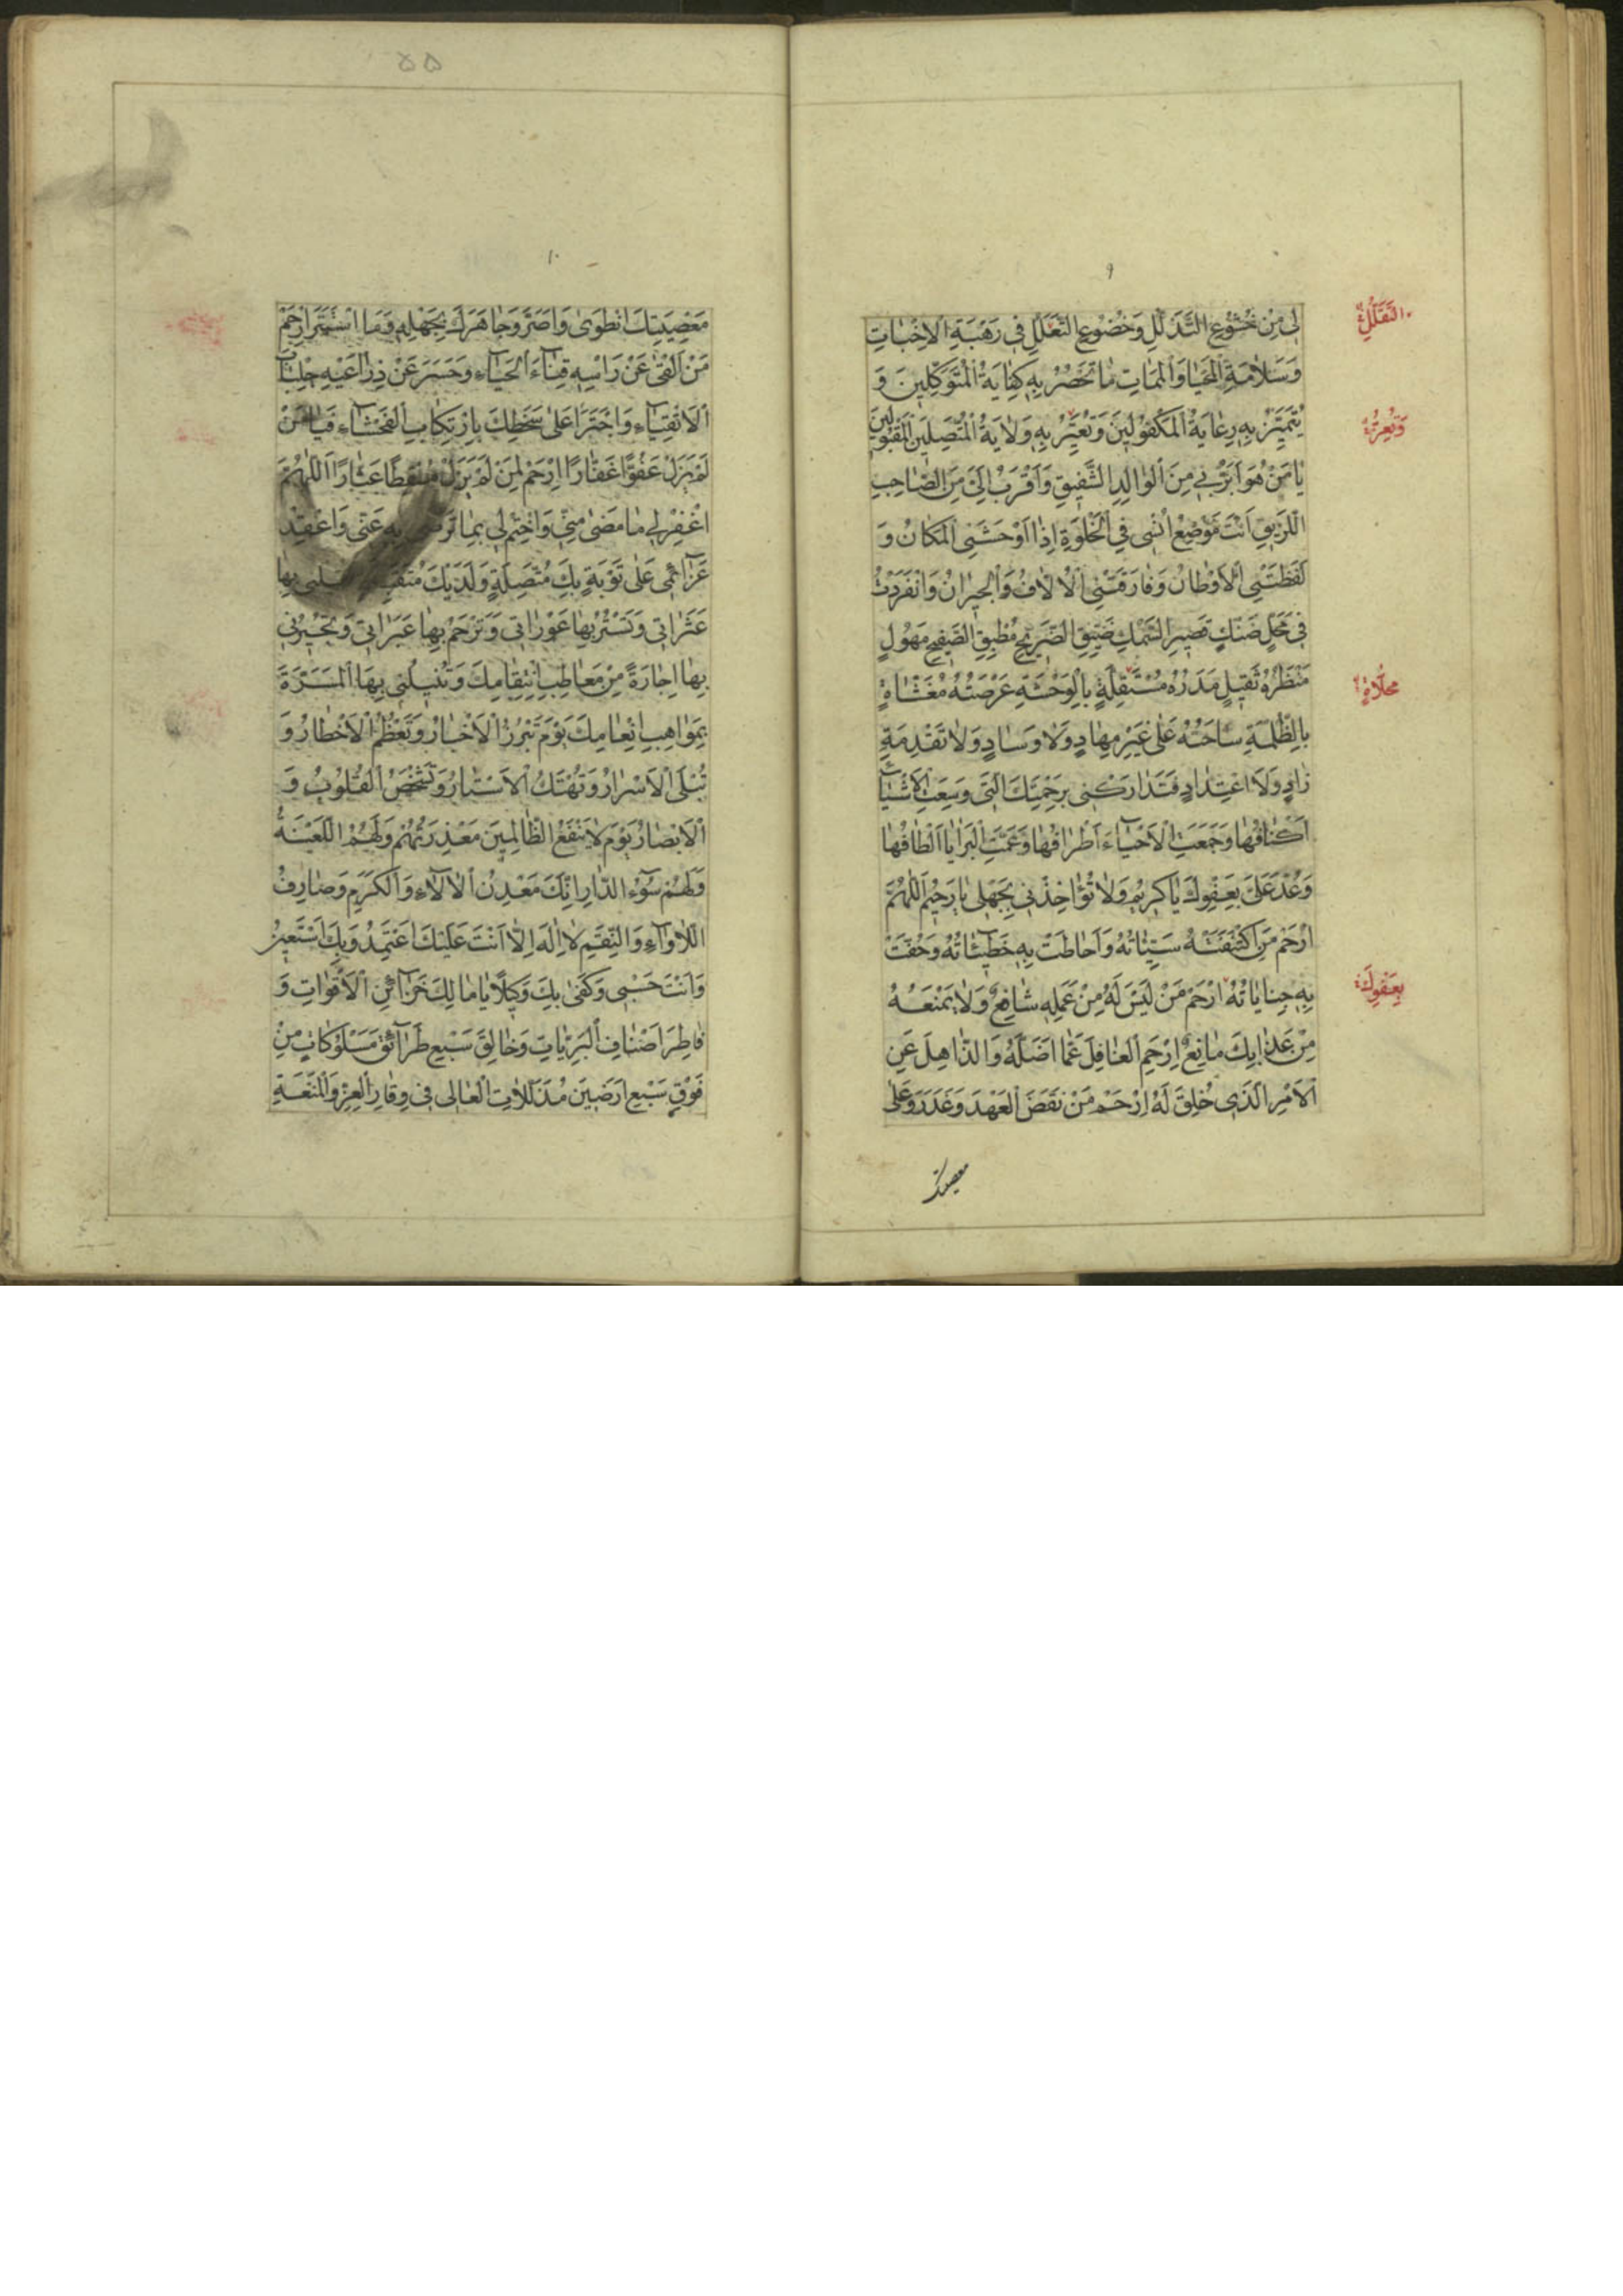 ٩
لى مِنْ خُشُوعِ التَّذَلُّلِ وَخُضُوعِ التَّعَلُّلِ فى رَهْبَةِ الْاِخْبٰاتِ
وَسَلٰامَةِ الْمَحْيٰا وَالْمَمٰاتِ مٰا تَحْضُرُ بِهِ كِفٰايَةُ الْمُتَوَكِّلينَ وَ
يَتَمَيَّزُ بِهِ رِعٰايَةُ الْمَكْفُولينَ وَتُعَيِّرُ بِهِ وِلٰايَةُ الْمُتَّصِلينَ الْمَقْبُولينَ
يٰا مَنْ هُوَ اَبَرُّ بى مِنَ الْوٰالِدِ الشَّفيقِ وَاَقْرَبُ اِلَىَّ مِنَ الصّٰاحِبِ
اللَّزيقِ اَنْتَ مَوْضِعُ اُنْسى فِى الْخَلْوَةِ اِذٰا اَوْحَشَنِى الْمَكٰانُ وَ
لَفَظَتْنِى الْاَوْطٰانُ وَفٰارَقَتْنِى الْاُلّٰافُ وَالْجيرٰانُ وَانْفَرَدْتُ
فى مَحَلٍّ ضَنْكٍ قَصيرِ السَّمْكِ ضَيِّقِ الضَّريحِ مُطْبِقِ الصَّفيحِ مَهُولٍ
مَنْظَرُهُ ثَقيلٍ مَدَرُهُ مُسْتَقِلَّةٍ بِالْوَحْشَةِ عَرْصَتُهُ مُغَشّٰاةٍ
بِالظُّلْمَةِ سٰاحَتُهُ عَلىٰ غَيْرِ مِهٰادٍ وَلٰا وِسٰادٍ وَلٰا تَقْدِمَةِ
زٰادٍ وَلَا اعْتِدٰادٍ فَتَدٰارَكْنى بِرَحْمَتِكَ الَّتى وَسِعَتِ الْاَشْيٰاءَ
اَكْنٰافُهٰا وَجَمَعَتِ الْاَحْيٰاءَ اَطْرٰافُهٰا وَعَمَّتِ الْبَرٰايٰا اَلْطٰافُهٰا
وَعُدْ عَلَىَّ بِعَفْوِكَ يٰا كَريمُ وَلٰا تُؤٰاخِذْنى بِجَهْلى يٰا رَحيمُ اَللّٰهُمَّ
ارْحَمْ مَنِ اكْتَنَفَتْهُ سَيِّئٰاتُهُ وَاَحٰاطَتْ بِهِ خَطيئٰاتُهُ وَحَفَّتْ
بِهِ جِنٰايٰاتُهُ اِرْحَمْ مَنْ لَيْسَ لَهُ مِنْ عَمَلِهِ شٰافِعٌ وَلٰا يَمْنَعُهُ
مِنْ عَذٰابِكَ مٰانِعٌ اِرْحَمِ الْغٰافِلَ عَمّٰا اَضَلَّهُ وَالذّٰاهِلَ عَنِ
الْاَمْرِ الَّذى خُلِقَ لَهُ اِرْحَمْ مَنْ نَقَضَ الْعَهْدَ وَغَدَرَ وَعَلىٰ
معصيتك
التَّقَلُّلِ
وَتَعِزُّ
محلّاةٍ
بِعَفْوِكَ
۵۵
١٠
مَعْصِيَتِكَ انْطَوىٰ وَاَصَرَّ وَجٰاهَرَكَ بِجَهْلِهِ وَمَا اسْتَتَرَ اِرْحَمْ
مَنْ اَلْقىٰ عَنْ رَاْسِهِ قِنٰاعَ الْحَيٰاءِ وَحَسَرَ عَنْ ذِرٰاعَيْهِ جِلْبٰابَ
الْاَتْقِيٰاءِ وَاجْتَرَءَ عَلىٰ سَخَطِكَ بِارْتِكٰابِ الْفَحْشٰاءِ فَيٰا مَنْ
لَمْ يَزَلْ عَفُوًّا غَفّٰارًا اِرْحَمْ لِمَنْ لَمْ يَزَلْ مُسْقِطًا عَثّٰارًا اَللّٰهُمَّ
اغْفِرْ لى مٰا مَضىٰ مِنّى وَاخْتِمْ لى بِمٰا تَرْضىٰ بِهِ عَنّى وَاعْقِدْ
عَزٰائِمى عَلىٰ تَوْبَةٍ بِكَ مُتَّصِلَةٍ وَلَدَيْكَ بِهٰا
عَثَرٰاتى وَتَسْتُرُ بِهٰا عَوْرٰاتى وَتَرْحَمُ بِهٰا عَبَرٰاتى وَتُجيرُنى
بِهٰا اِجٰارَةً مِنْ مَعٰاطِبِ انْتِقٰامِكَ وَتُنيلُنى بِهَا الْمَسَرَّةَ
بِمَوٰاهِبِ اِنْعٰامِكَ يَوْمَ تَبْرُزُ الْاَخْبٰارُ وَتَعْظُمُ الْاَخْطٰارُ وَ
تُبْلَى الْاَسْرٰارُ وَتُهْتَكُ الْاَسْتٰارُ وَتَشْخَصُ الْقُلُوبُ وَ
الْاَبْصٰارُ يَوْمَ لٰا يَنْفَعُ الظّٰالِمينَ مَعْذِرَتُهُمْ وَلَهُمُ اللَّعْنَةُ
وَلَهُمْ سُوءُ الدّٰارِ اِنَّكَ مَعْدِنُ الْاٰلٰاءِ وَالْكَرَمِ وَصٰارِفُ
اللَّاْوٰاءِ وَالنِّقَمِ لٰا اِلٰهَ اِلّٰا اَنْتَ عَلَيْكَ اَعْتَمِدُ وَبِكَ اَسْتَعينُ
وَاَنْتَ حَسْبى وَكَفىٰ بِكَ وَكيلًا يٰا مٰالِكَ خَزٰائِنِ الْاَقْوٰاتِ وَ
فٰاطِرَ اَصْنٰافِ الْبَرِيّٰاتِ وَخٰالِقَ سَبْعِ طَرٰائِقَ مَسْلُوكٰاتٍ مِنْ
فَوْقِ سَبْعِ اَرَضينَ مُذَلَّلٰاتٍ الْعٰالى فى وِقٰارِ الْعِزِّ وَالْمَنَعَةِ